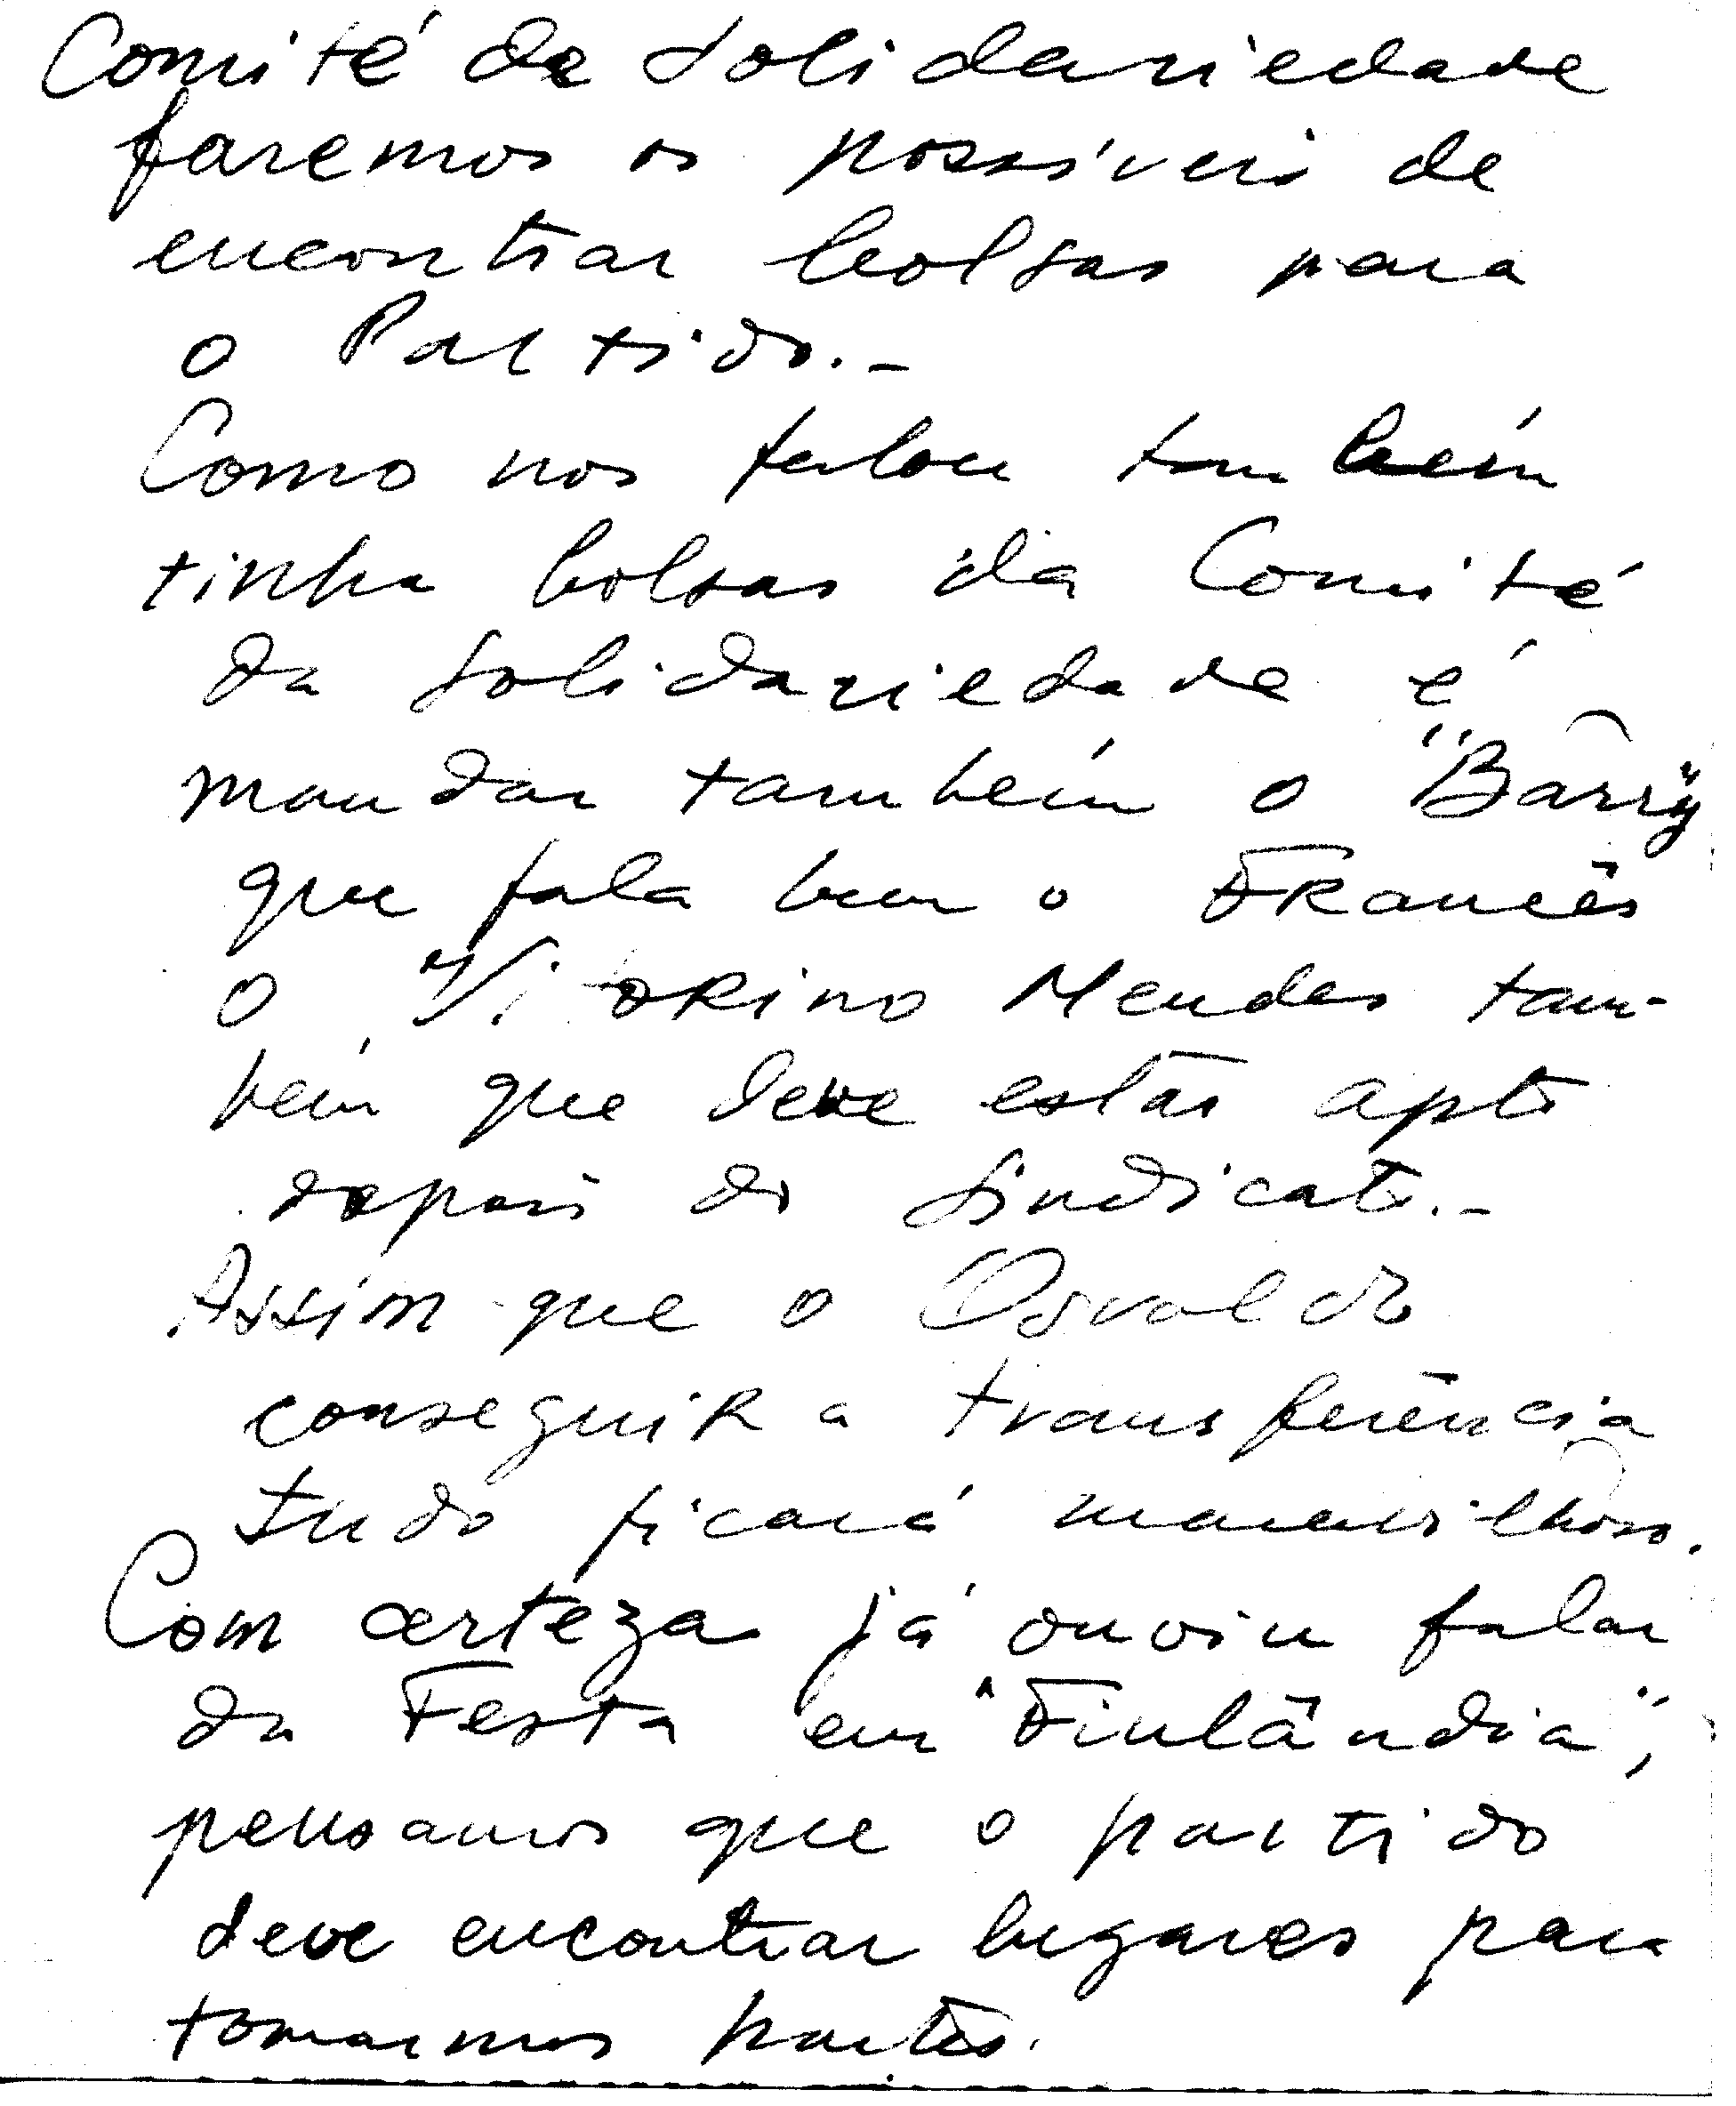 Comité de Solidariedade
faremos os possíveis de
encontrar bolsas para
o Partido.-
Como nos falou também
tinha bolsas da Comité
da Solidariedade é
mandar também o "Barry"
que fala bem o Francês
o Vitorino Mendes tam-
bém que deve estar apto
depois do Sindicato.-
Assim que o Osvaldo
conseguir a transferência
tudo ficará maravilhoso.
Com certeza já ouviu falar
da Festa em "Finlândia",
pensamos que o partido
deve encontrar lugares para
tomarmos partes.